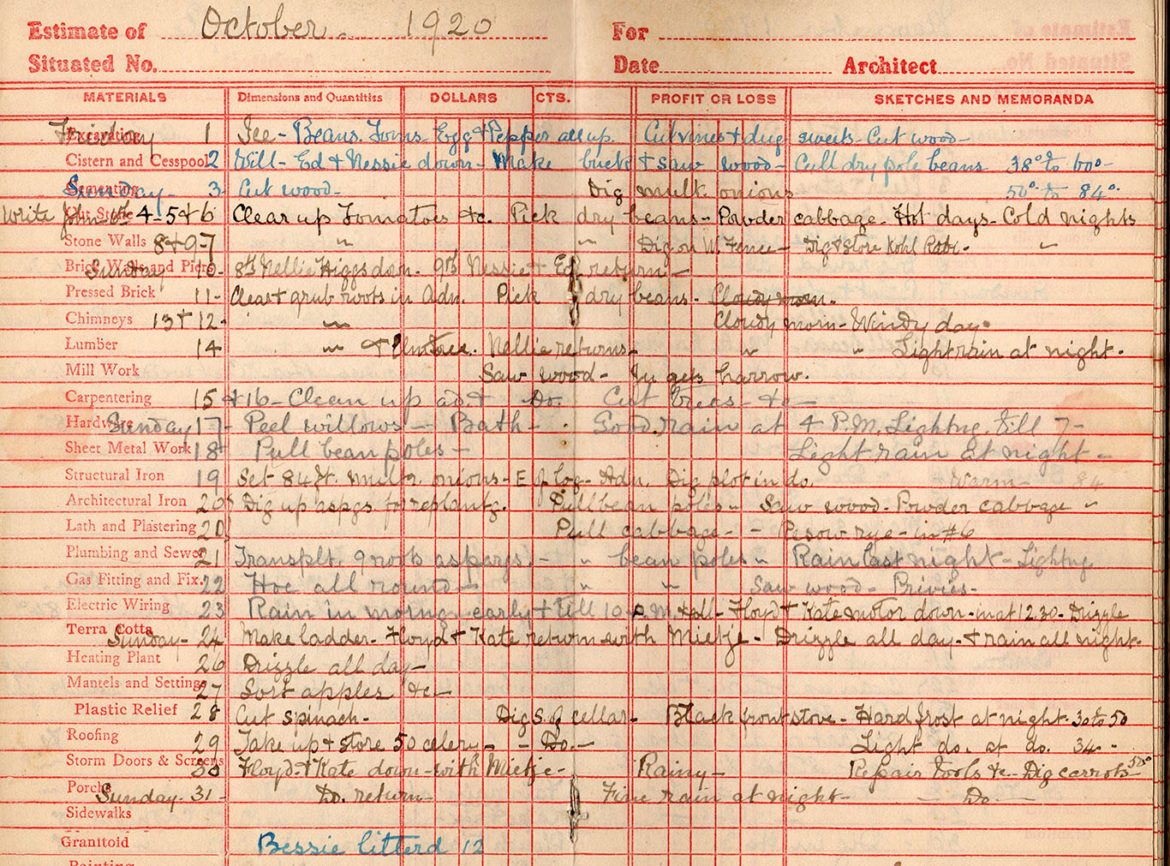 Estimate of October. 1920 For
Situated No. Date Architect
MATERIALS Dimensions and Quantities DOLLARS CTS. PROFIT OR LOSS SKETCHES AND MEMORANDA
Excavating Friday 1 Ice - Beans. Toms. Egg & Pepper all up. Cut vines & dug sweets - Cut wood -
Cistern and Cesspool 2 Will - Ed & Nessie down - Make buck & saw wood - Cull dry pole beans 38° to 60° -
Sunday - 3 Cut wood - Dig mult. onions 50° to 84°.
Write 4-5&6 Clear up Tomatoes &c. Pick dry beans - Powder cabbage. Hot days - Cold nights
Stone Walls 8&9-7 " " Dig on W. Fence - Dig & store Kohl Rabi. "
Brick Walls and Piers Sunday 10 - 8th Nellie Higgs down. 9th Nessie & Ed return -
Pressed Brick 11 - Clear & grub roots in Adn. Pick dry beans - Cloudy morn.
Chimneys 13 & 12 - " Cloudy morn - Windy day.
Lumber 14 " & Elm tree. Nellie returns - " " Light rain at night.
Mill Work Saw wood - Jy gets harrow.
Carpentering 15 & 16 - Clean up ad & Do. Cut trees - &c -
Hardware Sunday 17 - Peel willows - Bath - Good rain at 4 P.M. Lightng. till 7 -
Sheet Metal Work 18 Pull bean poles - Light rain at night -
Structural Iron 19 Set 84 ft. mult. onions - E of Log - Adn. Dig plot in do. Warm - 84
Architectural Iron 20 Dig up aspgs for replantg. Pull bean poles - Saw wood - Powder cabbage "
Lath and Plastering 20 Pull cabbage - - Resow rye - in #6
Plumbing and Sewer 21 Transplt. 9 roots aspargs! - " bean poles " Rain last night - Lightng
Gas Fitting and Fix. 22 Hoe all round - " " Saw wood - Privies -
Electric Wiring 23 Rain in morng - early & till 10 A.M. Floyd & Kate motor down - 12.30 - Drizzle
Terra Cotta Sunday - 24 Make ladder - Floyd & Kate return with Mietje - Drizzle all day - & rain all night -
Heating Plant 26 Drizzle all day -
Mantels and Settings 27 Sort apples &c -
Plastic Relief 28 Cut spinach - Dig S. of cellar - Black front stove - Hard frost at night - 30 to 50
Roofing 29 Take up & store 50 celery - - Do. - Light do. at do. 34 -
Storm Doors & Screens 30 Floyd & Kate down - with Mietje - Rainy - Repair tools &c - Dig carrots - 50°
Porch Sunday - 31 - Do. return - Fine rain at night - Do -
Sidewalks
Granitoid Bessie litterd 12
Painting